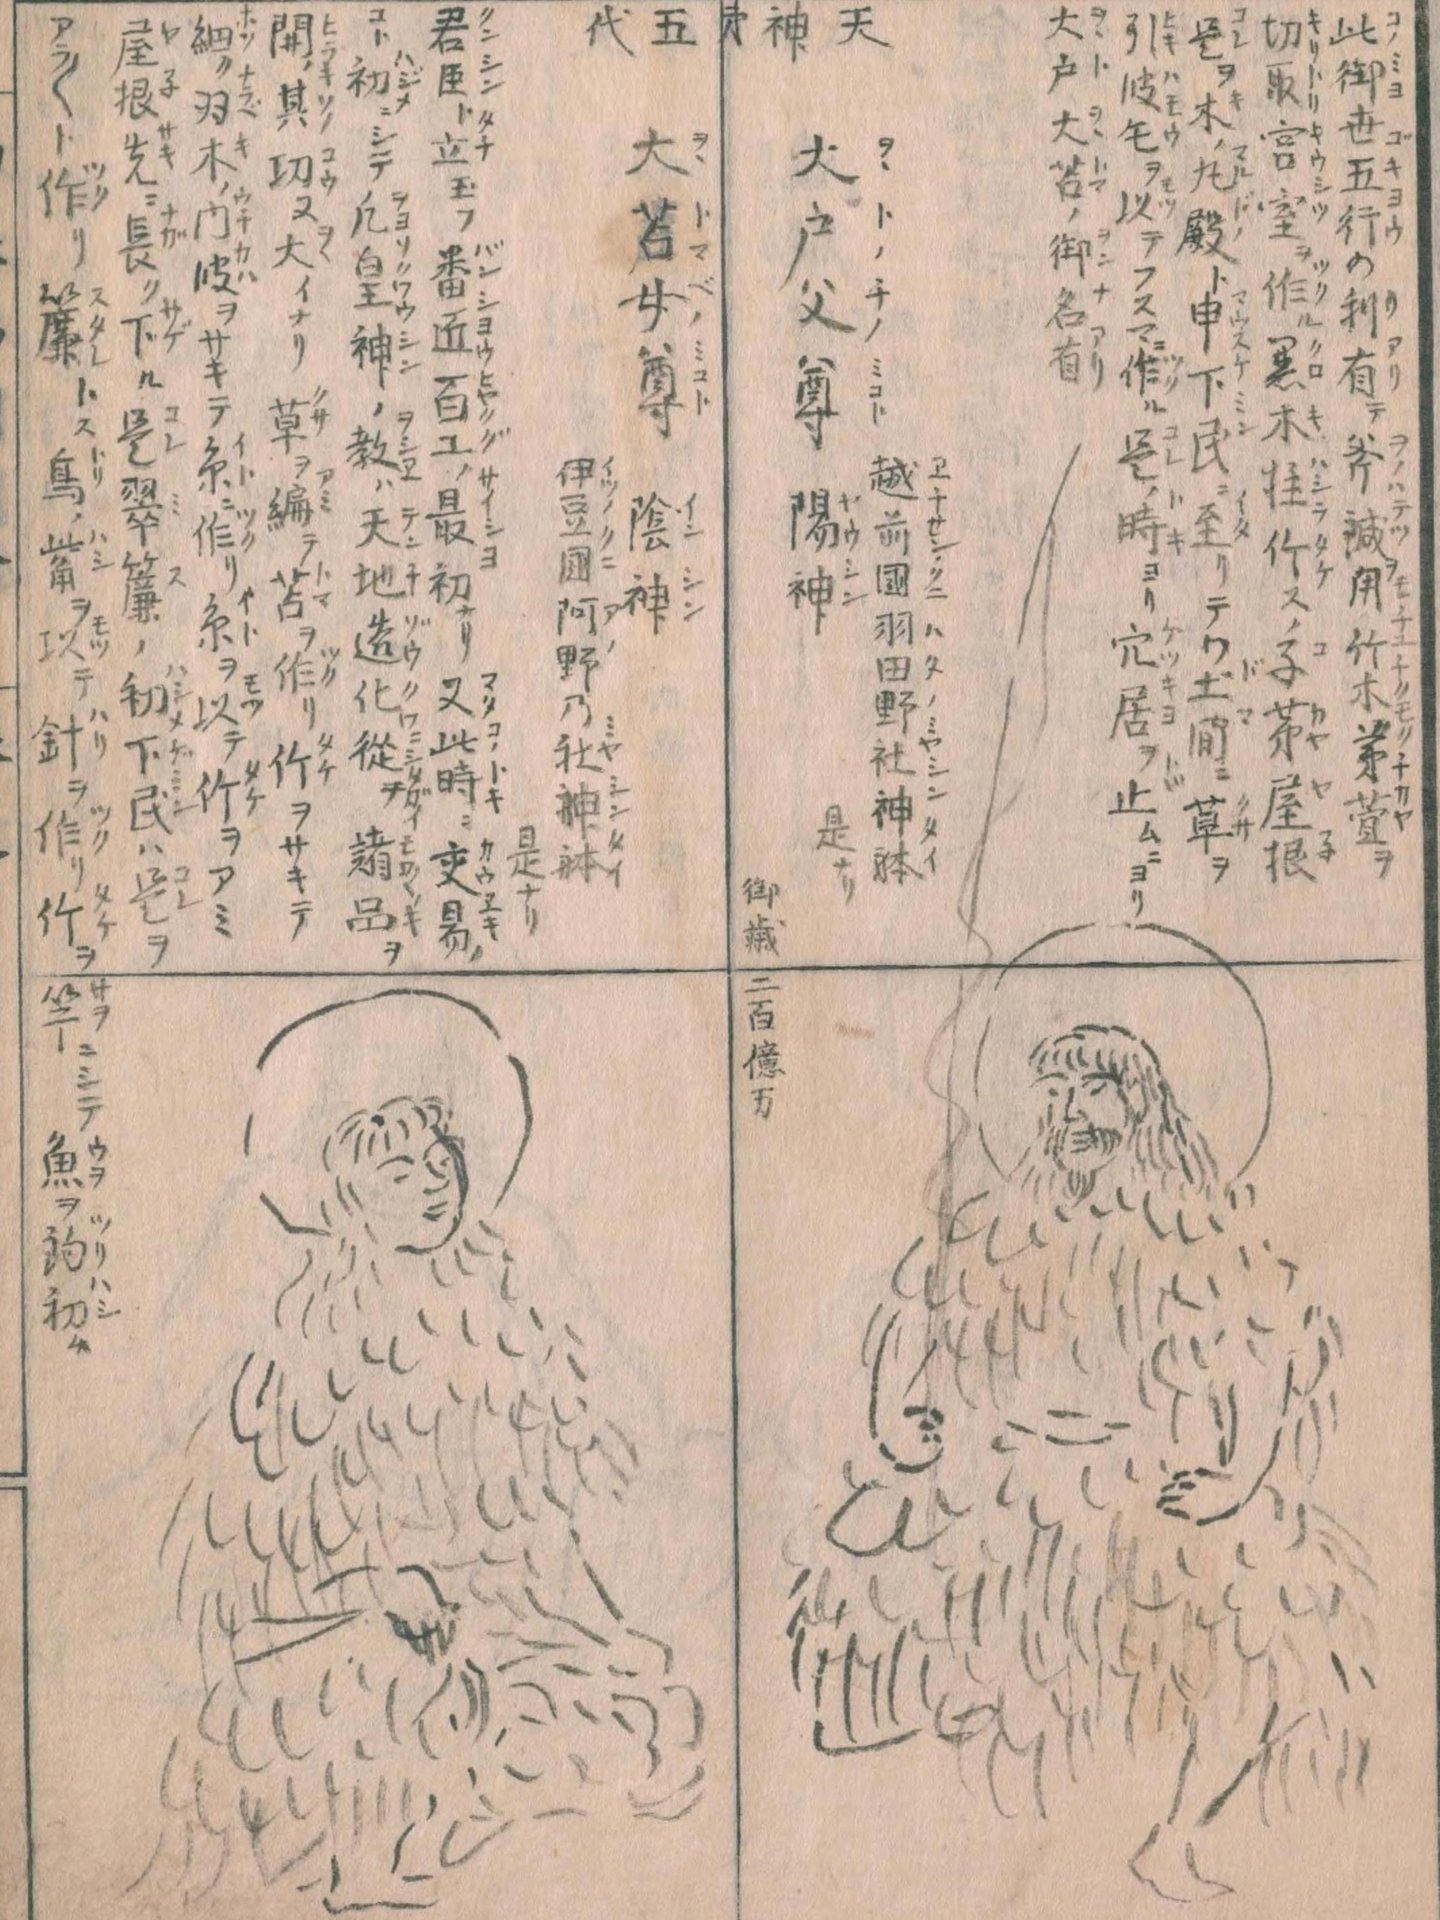 此御世五行の利有テ斧鍼用竹木茅萱ヲ
切取宮室ヲ作ル黒木柱竹スノ子茅屋根
是ヲ木ノ丸殿ト申下民ニ至リテワ土間ニ草ヲ
引彼毛ヲ以テフスマニ作ル是ノ時ヨリ穴居ヲ止ムニヨリ
大戸大苫ノ御名有
天神 五代
大戸父尊 陽神
越前國羽田野社神躰
是ナリ
御歳 二百億万
大苫女尊 陰神
伊豆國阿野乃社神躰
是ナリ
君臣ト立玉フ番匠百工ノ最初ナリ又此時ニ交易ノ
コト初ニシテノ凡皇神ノ教ハ天地造化從ヲ諸品ヲ
開ノ其功又大イナリ草ヲ編テ苫ヲ作リ竹ヲサキテ
細ク羽木ノ内皮ヲサキテ糸ニ作リ糸ヲ以テ竹ヲアミ
屋根先ニ長ク下ル是翠簾ノ初下民ハ是ヲ
アラ〱ト作リ簾トス鳥ノ觜ヲ以テ針ヲ作リ竹ヲ
竿ニシテ魚ヲ釣初ム